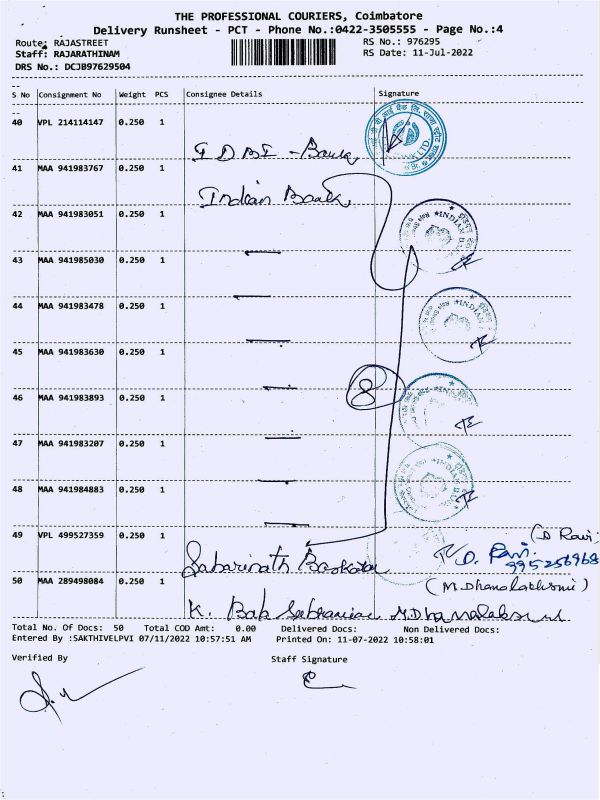 THE PROFESSIONAL COURIERS, Coimbatore
Delivery Runsheet - PCT - Phone No.:0422-3505555 - Page No.:4
Route: RAJASTREET RS No.: 976295
Staff: RAJARATHINAM RS Date: 11-Jul-2022
DRS No.: DCJB97629504
S No Consignment No Weight PCS Consignee Details Signature
40 VPL 214114147 0.250 1
IDBI - Bank
41 MAA 941983767 0.250 1
Indian Bank
42 MAA 941983051 0.250 1
INDIAN
43 MAA 941985030 0.250 1
44 MAA 941983478 0.250 1
INDIAN
45 MAA 941983630 0.250 1
46 MAA 941983893 0.250 1
8
47 MAA 941983207 0.250 1
48 MAA 941984883 0.250 1
49 VPL 499527359 0.250 1
(D Ravi)
Sabarinath D. Ravi.
50 MAA 289498084 0.250 1
(M.Dhanalakshmi)
K. M.Dhanalakshmi
Total No. Of Docs: 50 Total COD Amt: 0.00 Delivered Docs: Non Delivered Docs:
Entered By :SAKTHIVELPVI 07/11/2022 10:57:51 AM Printed On: 11-07-2022 10:58:01
Verified By Staff Signature